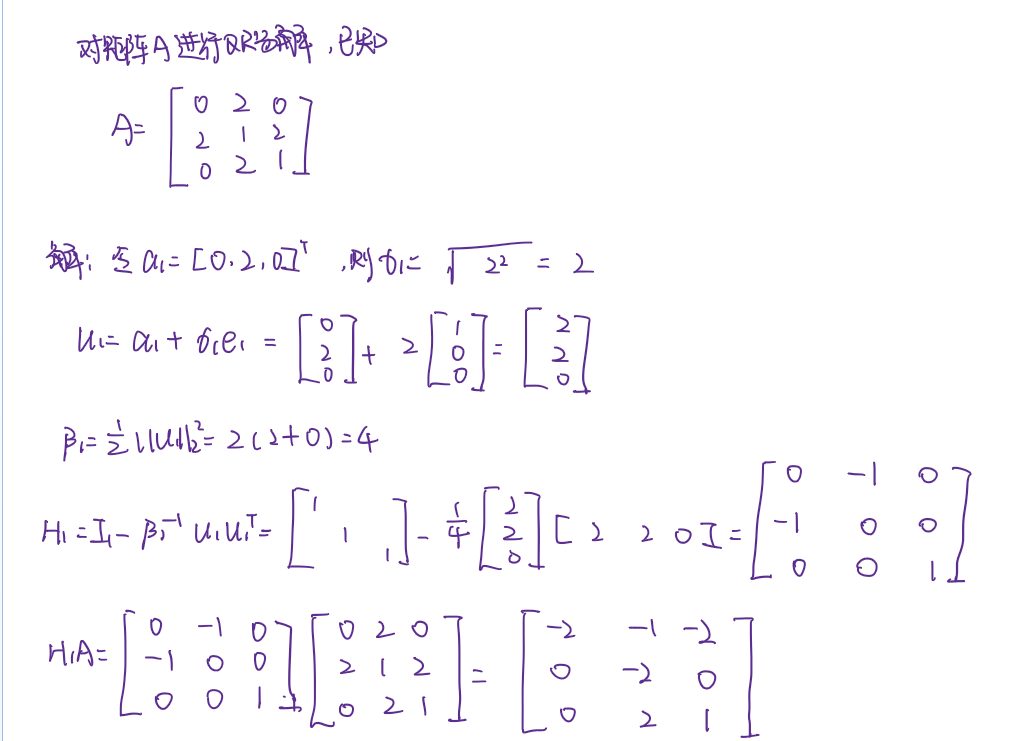 对矩阵A进行QR分解,已知
A= [ 0 2 0
2 1 2
0 2 1 ]
解: 令 α₁= [0, 2, 0]ᵀ ,则σ₁= √2² = 2
u₁= α₁+ σ₁e₁ = [0 2 0] + 2 [1 0 0] = [2 2 0]
β₁= 1/2 ||u₁||₂² = 2(2+0)=4
H₁=I₁- β₁⁻¹ u₁u₁ᵀ= [1 1 1] - 1/4 [2 2 0] [2 2 0] = [ 0 -1 0
-1 0 0
0 0 1 ]
H₁A= [ 0 -1 0 ] [ 0 2 0 ] = [ -2 -1 -2 ]
[ -1 0 0 ] [ 2 1 2 ] [ 0 -2 0 ]
[ 0 0 1 ] [ 0 2 1 ] [ 0 2 1 ]